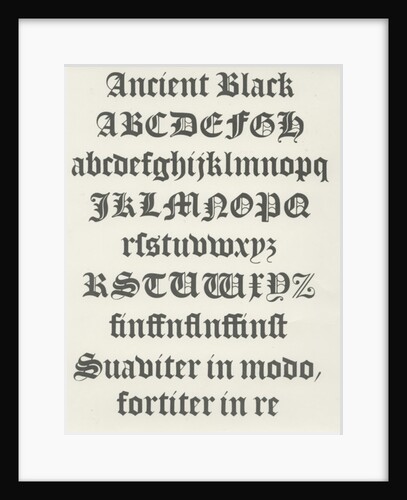 Ancient Black
ABCDEFGH
abcdefghijklmnopq
JKLMNOPQ
rſstuvwxyz
RSTUWXYZ
finffnflnffinſt
Suaviter in modo,
fortiter in re